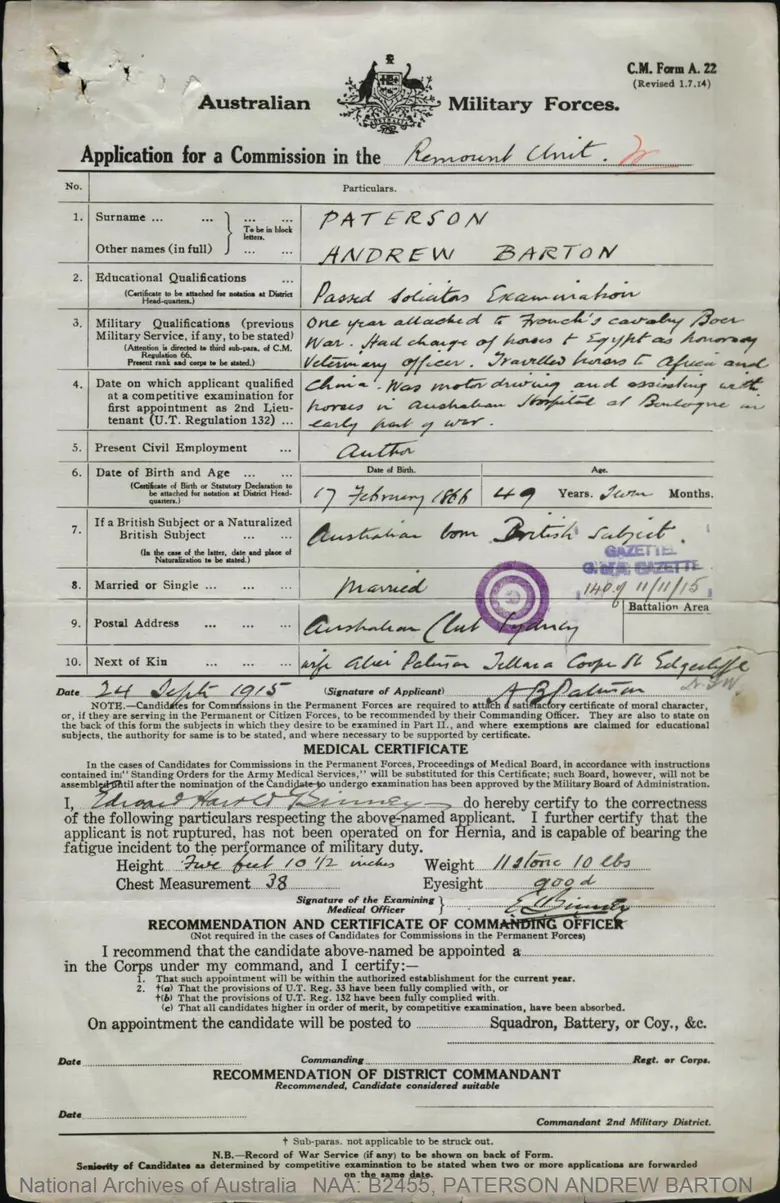 C.M. Form A. 22
(Revised 1.7.14)
Australian Military Forces.
Application for a Commission in the Remount Unit.
No. Particulars.
1. Surname ... ... ... ... PATERSON
To be in block letters.
Other names (in full) ... ... ANDREW BARTON
2. Educational Qualifications ... Passed Solicitors Examination
(Certificate to be attached for notation at District Head-quarters.)
3. Military Qualifications (previous Military Service, if any, to be stated)
(Attention is directed to third sub-para. of C.M. Regulation 66.
Present rank and corps to be stated.)
One year attached to French's cavalry Boer
War. Had charge of horses to Egypt as honorary
Veterinary officer. Travelled horses to Africa and
China. Was motor driving and assisting with
horses in Australian Hospital at Boulogne in
early part of war.
4. Date on which applicant qualified
at a competitive examination for
first appointment as 2nd Lieu-
tenant (U.T. Regulation 132) ...
5. Present Civil Employment ... Author
6. Date of Birth and Age ... ... Date of Birth. Age.
(Certificate of Birth or Statutory Declaration to
be attached for notation at District Head-
quarters.)
17 February 1866 49 Years. Seven Months.
7. If a British Subject or a Naturalized
British Subject ... ... Australian born British Subject.
(In the case of the latter, date and place of
Naturalization to be stated.)
GAZETTE
GAZETTE
140 of 11/11/15
8. Married or Single ... ... ... Married
Battalion Area
9. Postal Address ... ... ... Australian Club Sydney
10. Next of Kin ... ... ... wife Alice Paterson Cooper St Edgecliffe
N.S.W.
Date 24 Sept 1915 (Signature of Applicant) A B Paterson
NOTE.—Candidates for Commissions in the Permanent Forces are required to attach a satisfactory certificate of moral character,
or, if they are serving in the Permanent or Citizen Forces, to be recommended by their Commanding Officer. They are also to state on
the back of this form the subjects in which they desire to be examined in Part II., and where exemptions are claimed for educational
subjects, the authority for same is to be stated, and where necessary to be supported by certificate.
MEDICAL CERTIFICATE
In the cases of Candidates for Commissions in the Permanent Forces, Proceedings of Medical Board, in accordance with instructions
contained in "Standing Orders for the Army Medical Services," will be substituted for this Certificate; such Board, however, will not be
assembled until after the nomination of the Candidate to undergo examination has been approved by the Military Board of Administration.
I, Edward Harold Binney do hereby certify to the correctness
of the following particulars respecting the above-named applicant. I further certify that the
applicant is not ruptured, has not been operated on for Hernia, and is capable of bearing the
fatigue incident to the performance of military duty.
Height Five feet 10 1/2 inches Weight 11 stone 10 lbs
Chest Measurement 38 Eyesight good
Signature of the Examining
Medical Officer E H Binney
RECOMMENDATION AND CERTIFICATE OF COMMANDING OFFICER
(Not required in the cases of Candidates for Commissions in the Permanent Forces)
I recommend that the candidate above-named be appointed a
in the Corps under my command, and I certify:—
1. That such appointment will be within the authorized establishment for the current year.
2. †(a) That the provisions of U.T. Reg. 33 have been fully complied with, or
†(b) That the provisions of U.T. Reg. 132 have been fully complied with.
(c) That all candidates higher in order of merit, by competitive examination, have been absorbed.
On appointment the candidate will be posted to Squadron, Battery, or Coy., &c.
Date Commanding Regt. or Corps.
RECOMMENDATION OF DISTRICT COMMANDANT
Recommended, Candidate considered suitable
Date
Commandant 2nd Military District.
† Sub-paras. not applicable to be struck out.
N.B.—Record of War Service (if any) to be shown on back of Form.
Seniority of Candidates as determined by competitive examination to be stated when two or more applications are forwarded
on the same date.
National Archives of Australia NAA: B2455, PATERSON ANDREW BARTON